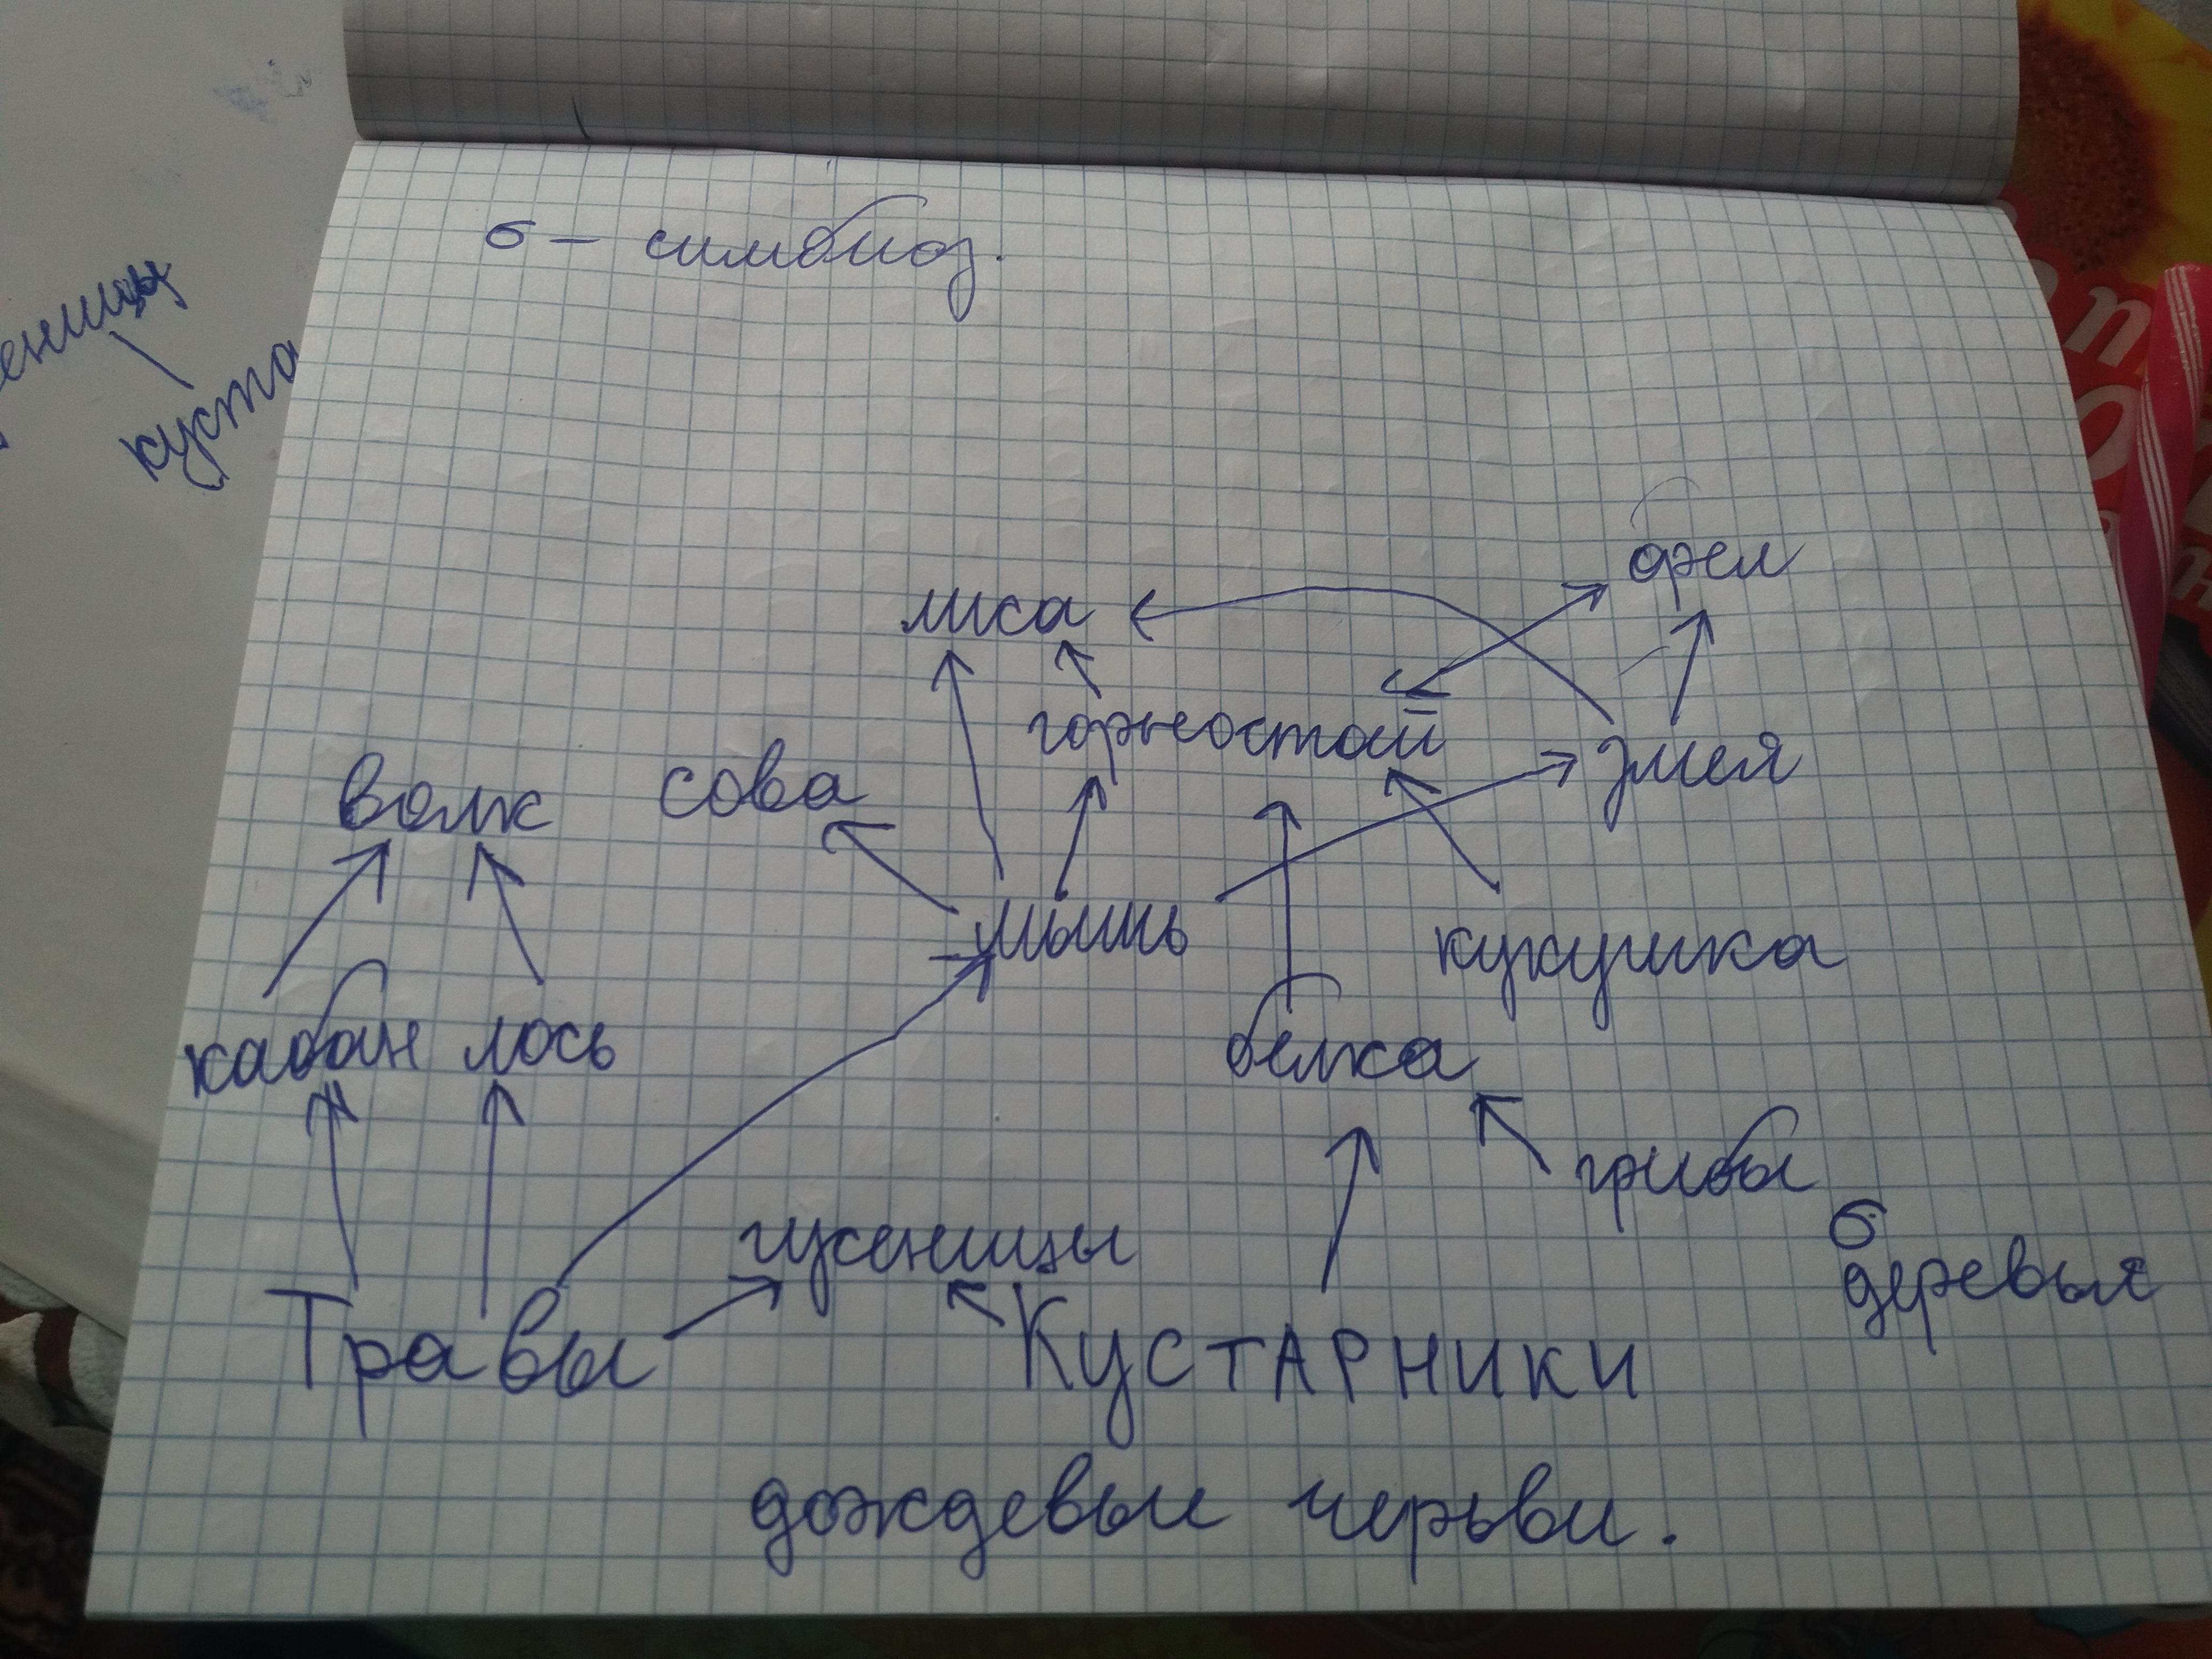 б – симбиоз.
орел
лиса
горностай
змея
волк сова
мышь
кукушка
кабан лось
белка
грибы
б
деревья
гусеницы
Травы
Кустарники
дождевые черьви.
еницы
куста